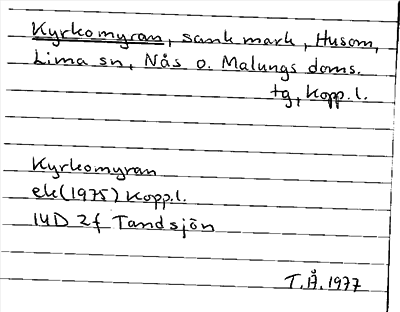 Kyrkomyran, sank mark, Husom,
Lima sn, Nås o. Malungs doms.
tg, Kopp.l.
Kyrkomyran
ek(1975) Kopp.l.
14D 2f Tandsjön
T.Å.1977